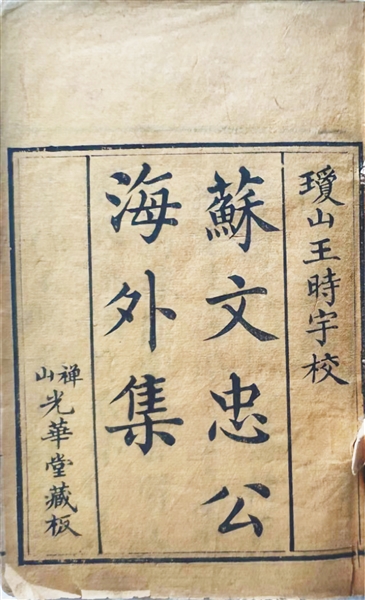 瓊山王時宇校
蘇文忠公
海外集
禅山光華堂藏板